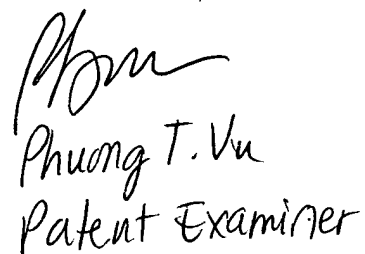 Phuong T. Vu
Patent Examiner